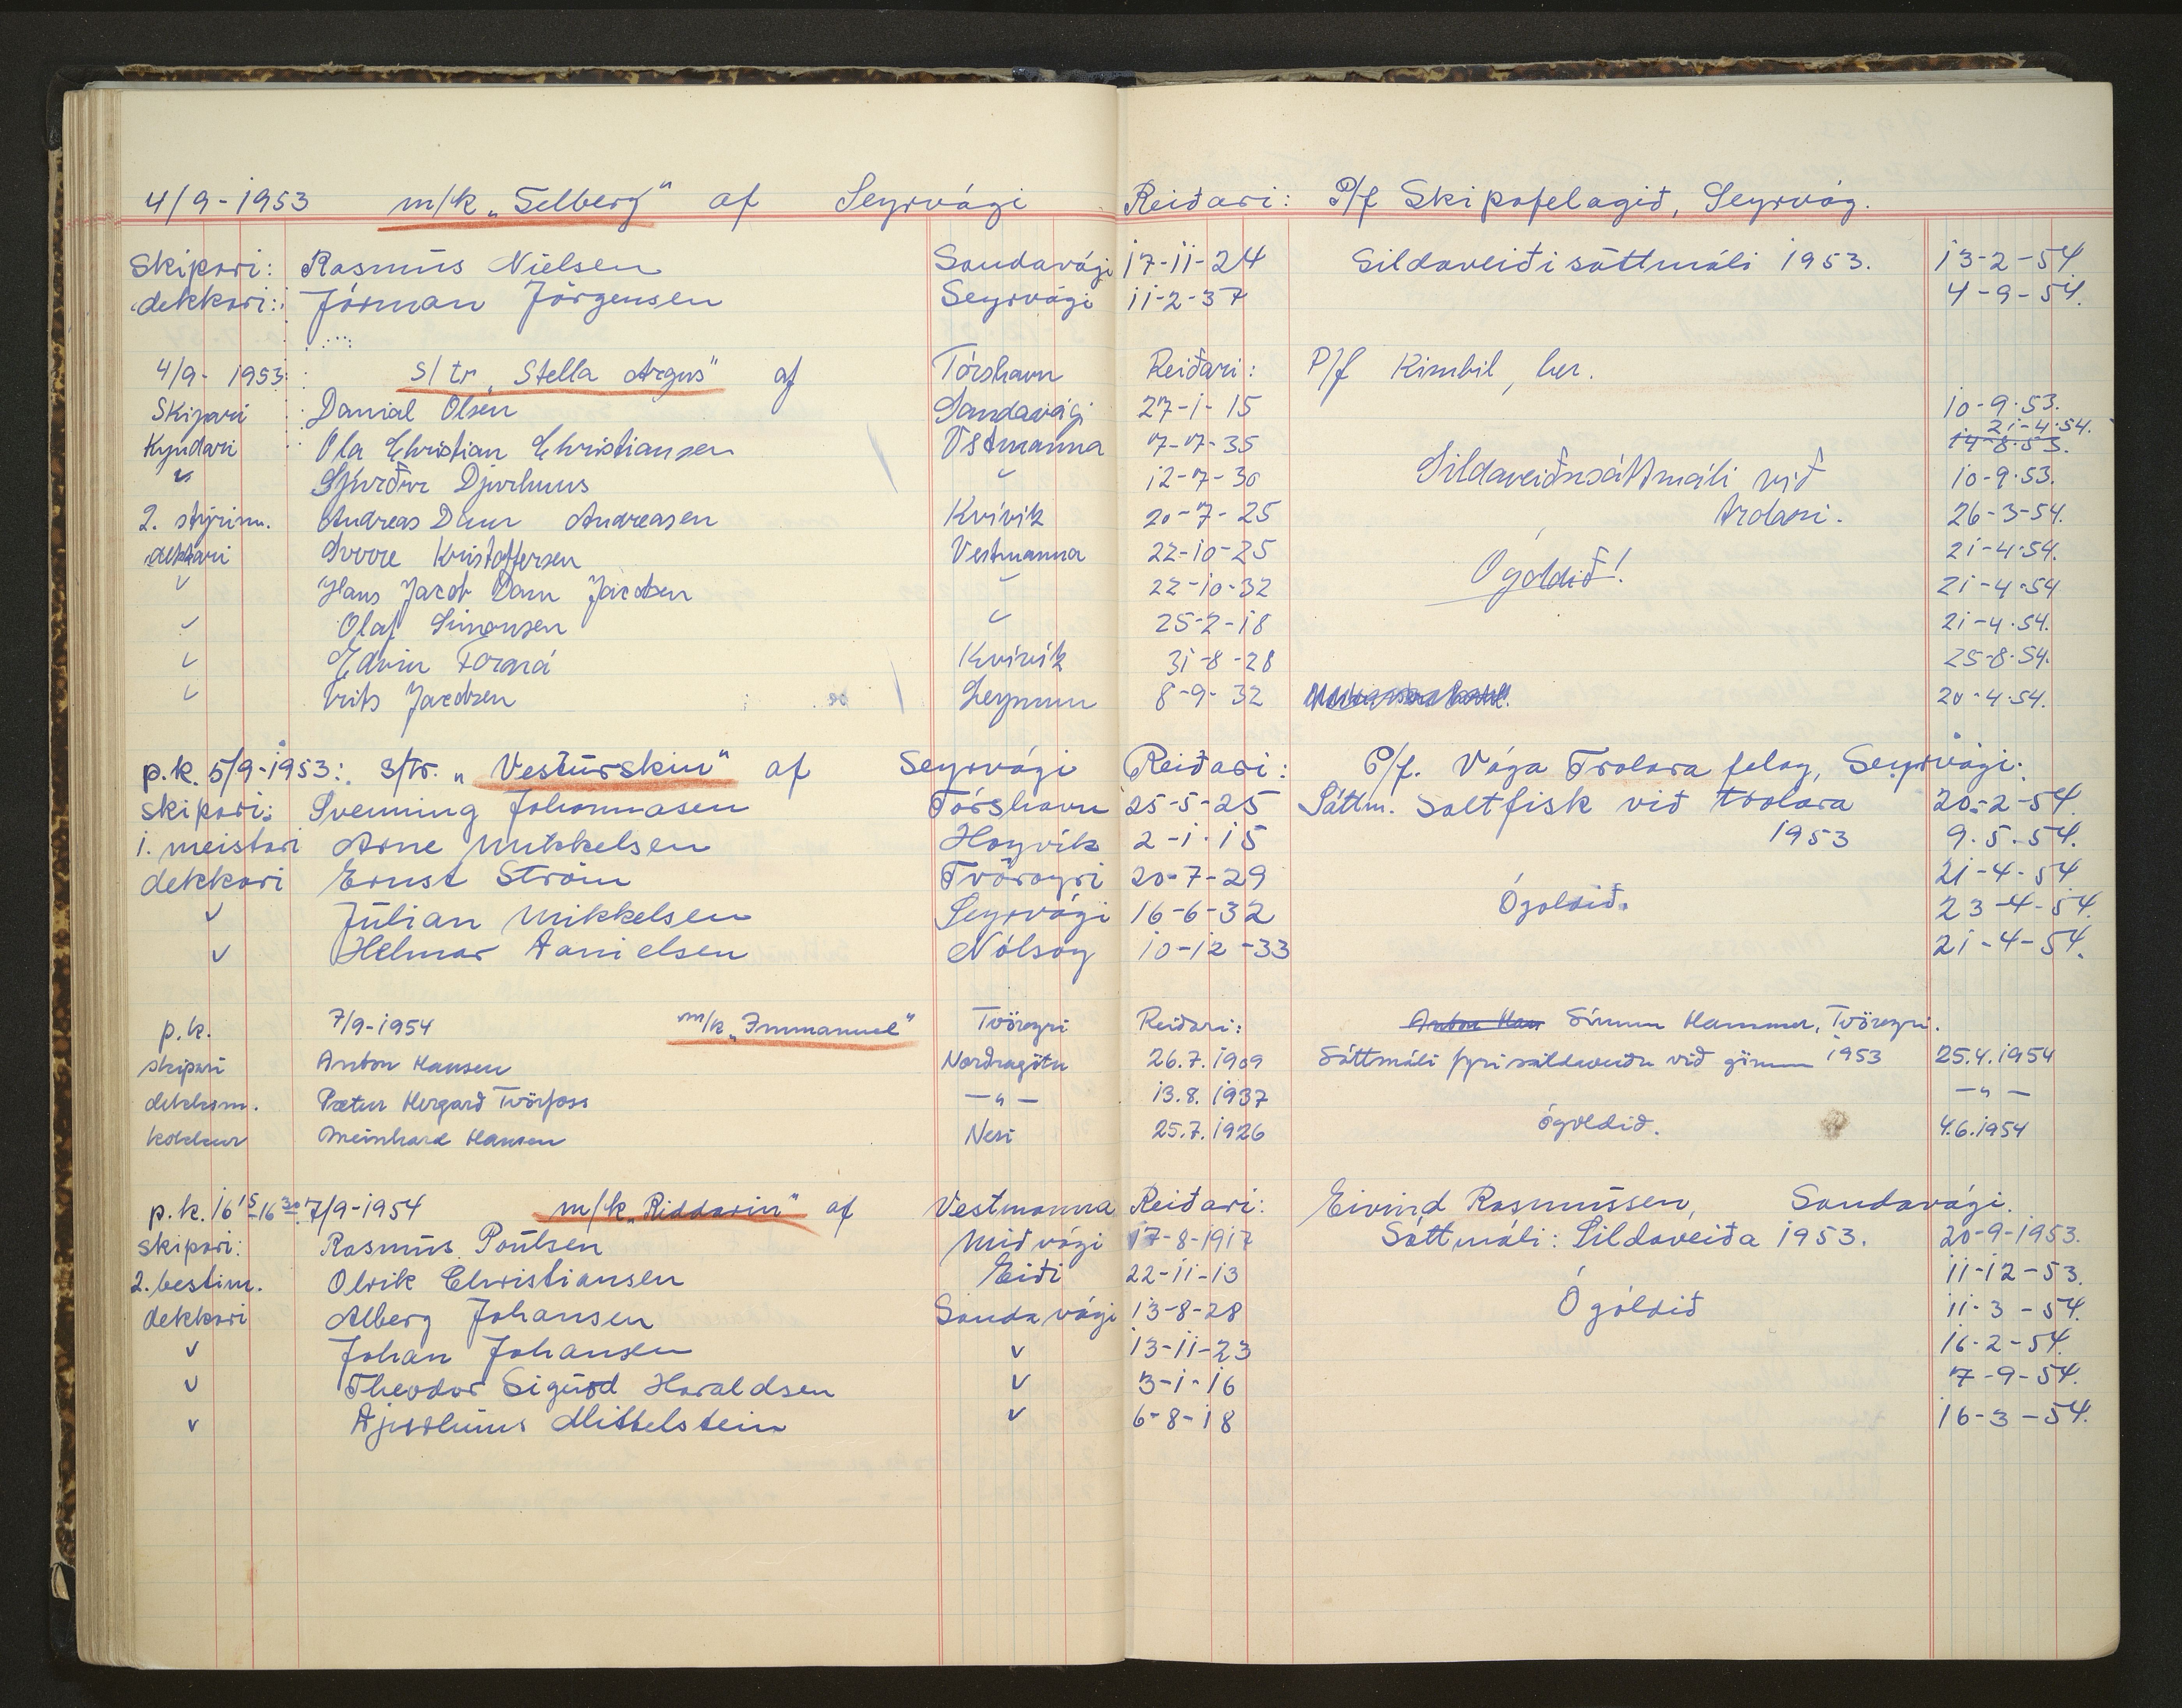 4/9-1953 m/k „Selberg“ af Seyrvági Reiðari: P/f Skipafelagið, Seyrvág.
Skipari: Rasmus Nielsen Sandavági 17-11-24 Sildaveiði sáttmáli 1953. 13-2-54
dekkari: Jórman Jörgensen Seyrvági 11-2-37 4-9-54.
4/9- 1953: s/tr „Stella Argus“ af Tórshavn Reiðari: P/f Kimbil, her.
Skipari Danial Olsen Sandavági 27-1-15 10-9-53.
21-4-54.
Kyndari Ola Christian Christiansen Vstmanna 7-7-35 14-8-53.
" Sjúrður Djurhuus " 12-7-30 Sildaveiðusáttmáli við 10-9-53.
2. stýrim. Andreas Dam Andreasen Kvívík 20-7-25 trolara. 26-3-54.
dekkari Sverre Kristoffersen Vestmanna 22-10-25 21-4-54.
" Hans Jacob Dam Jacobsen " 22-10-32 Ógoldið! 21-4-54
" Olaf Simonsen " 25-2-18 21-4-54.
" Edvin Forná Kvívík 31-8-28 25-8-54.
" Frits Jacobsen Leynum 8-9-32 20-4-54.
p.k. 5/9-1953: s/tr. „Vesturskin“ af Seyrvági Reiðari: P/f. Vága Trolara felag, Seyrvági.
Skipari: Svenning Johannasen Tórshavn 25-5-25 Sáttm. Saltfisk við trolara 20-2-54
1. meistari Arne Mikkelsen Hoyvík 2-1-15 1953 9-5-54.
dekkari Ernst Ström Tvöroyri 20-7-29 21-4-54
v Julian Mikkelsen Seyrvági 16-6-32 Ógoldið. 23-4-54.
v Helmar Danielsen Nólsoy 10-12-33 21-4-54.
p.k. 7/9-1954 m/k „Immanuel“ Tvöroyri Reiðari: Anton Han Simun Hammer, Tvöroyri.
skipari Anton Hansen Norðragötu 26.7.1909 Sáttmáli fyri sildaveiðu við görnum 1953 25.4.1954
dekksm. Pætur Hergarð Tvörfoss -"- 13.8.1937 -"-
kokkur Meinhard Hansen Nesi 25.7.1926 ógoldið. 4.6.1954
p.k. 16 15-16 30 7/9-1954 m/k „Riddarin“ af Vestmanna Reiðari: Eivind Rasmussen, Sandavági.
Skipari: Rasmus Poulsen Miðvági 17-8-1917 Sáttmáli: Sildaveiða 1953. 20-9-1953.
2. bestim. Olrik Christiansen Eiði 22-11-13 11-12-53.
dekkari Alberg Johansen Sandavági 13-8-28 Ógoldið 11-3-54.
v Johan Johansen v 13-11-23 16-2-54.
v Theodor Sigurd Haraldsen v 3-1-16 7-9-54.
v Djurhuus Mittelstein v 6-8-18 16-3-54.